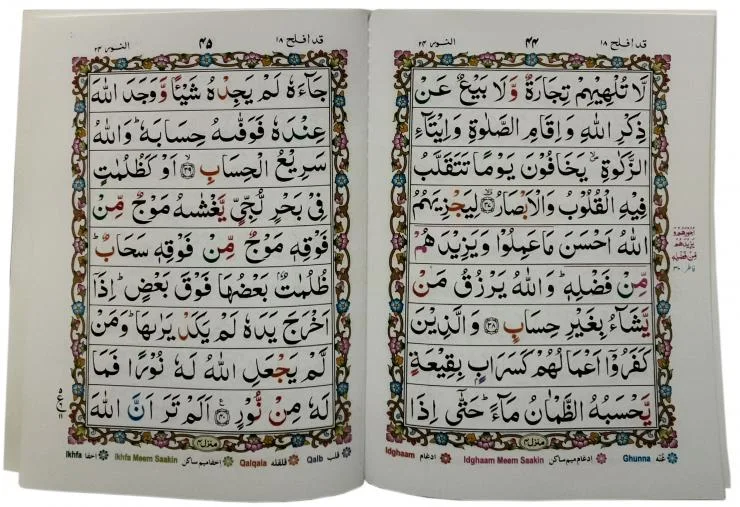 قد افلح ١٨
٤٤
النور ٢٤
لَّا تُلْهِيْهِمْ تِجَارَةٌ وَّلَا بَيْعٌ عَنْ
ذِكْرِ اللّٰهِ وَاِقَامِ الصَّلٰوةِ وَاِيْتَآءِ
الزَّكٰوةِ ۙ يَخَافُوْنَ يَوْمًا تَتَقَلَّبُ
فِيْهِ الْقُلُوْبُ وَالْاَبْصَارُ ۙ﴿٣٧﴾ لِيَجْزِيَهُمُ
اللّٰهُ اَحْسَنَ مَا عَمِلُوْا وَيَزِيْدَهُمْ
مِّنْ فَضْلِهٖ ؕ وَاللّٰهُ يَرْزُقُ مَنْ
يَّشَآءُ بِغَيْرِ حِسَابٍ ﴿٣٨﴾ وَالَّذِيْنَ
كَفَرُوْۤا اَعْمَالُهُمْ كَسَرَابٍۭ بِقِيْعَةٍ
يَّحْسَبُهُ الظَّمْاٰنُ مَآءً ؕ حَتّٰۤى اِذَا
منزل ٤
يَزِيْدَهُمْ
مِّنْ فَضْلِهٖ
فاطر ٣٠
Idghaam ادغام Idghaam Meem Saakin ادغام میم ساکن Ghunna غنّه
قد افلح ١٨
٤٥
النور ٢٤
جَآءَهٗ لَمْ يَجِدْهُ شَيْـًٔا وَّوَجَدَ اللّٰهَ
عِنْدَهٗ فَوَفّٰىهُ حِسَابَهٗ ؕ وَاللّٰهُ
سَرِيْعُ الْحِسَابِ ﴿٣٩﴾ اَوْ كَظُلُمٰتٍ
فِيْ بَحْرٍ لُّجِّيٍّ يَّغْشٰىهُ مَوْجٌ مِّنْ
فَوْقِهٖ مَوْجٌ مِّنْ فَوْقِهٖ سَحَابٌ ؕ
ظُلُمٰتٌۢ بَعْضُهَا فَوْقَ بَعْضٍ ؕ اِذَاۤ
اَخْرَجَ يَدَهٗ لَمْ يَكَدْ يَرٰىهَا ؕ وَمَنْ
لَّمْ يَجْعَلِ اللّٰهُ لَهٗ نُوْرًا فَمَا
لَهٗ مِنْ نُّوْرٍ ﴿٤٠﴾ اَلَمْ تَرَ اَنَّ اللّٰهَ
منزل ٤
Ikhfa اخفا Ikhfa Meem Saakin اخفا میم ساکن Qalqala قلقله Qalb قلب